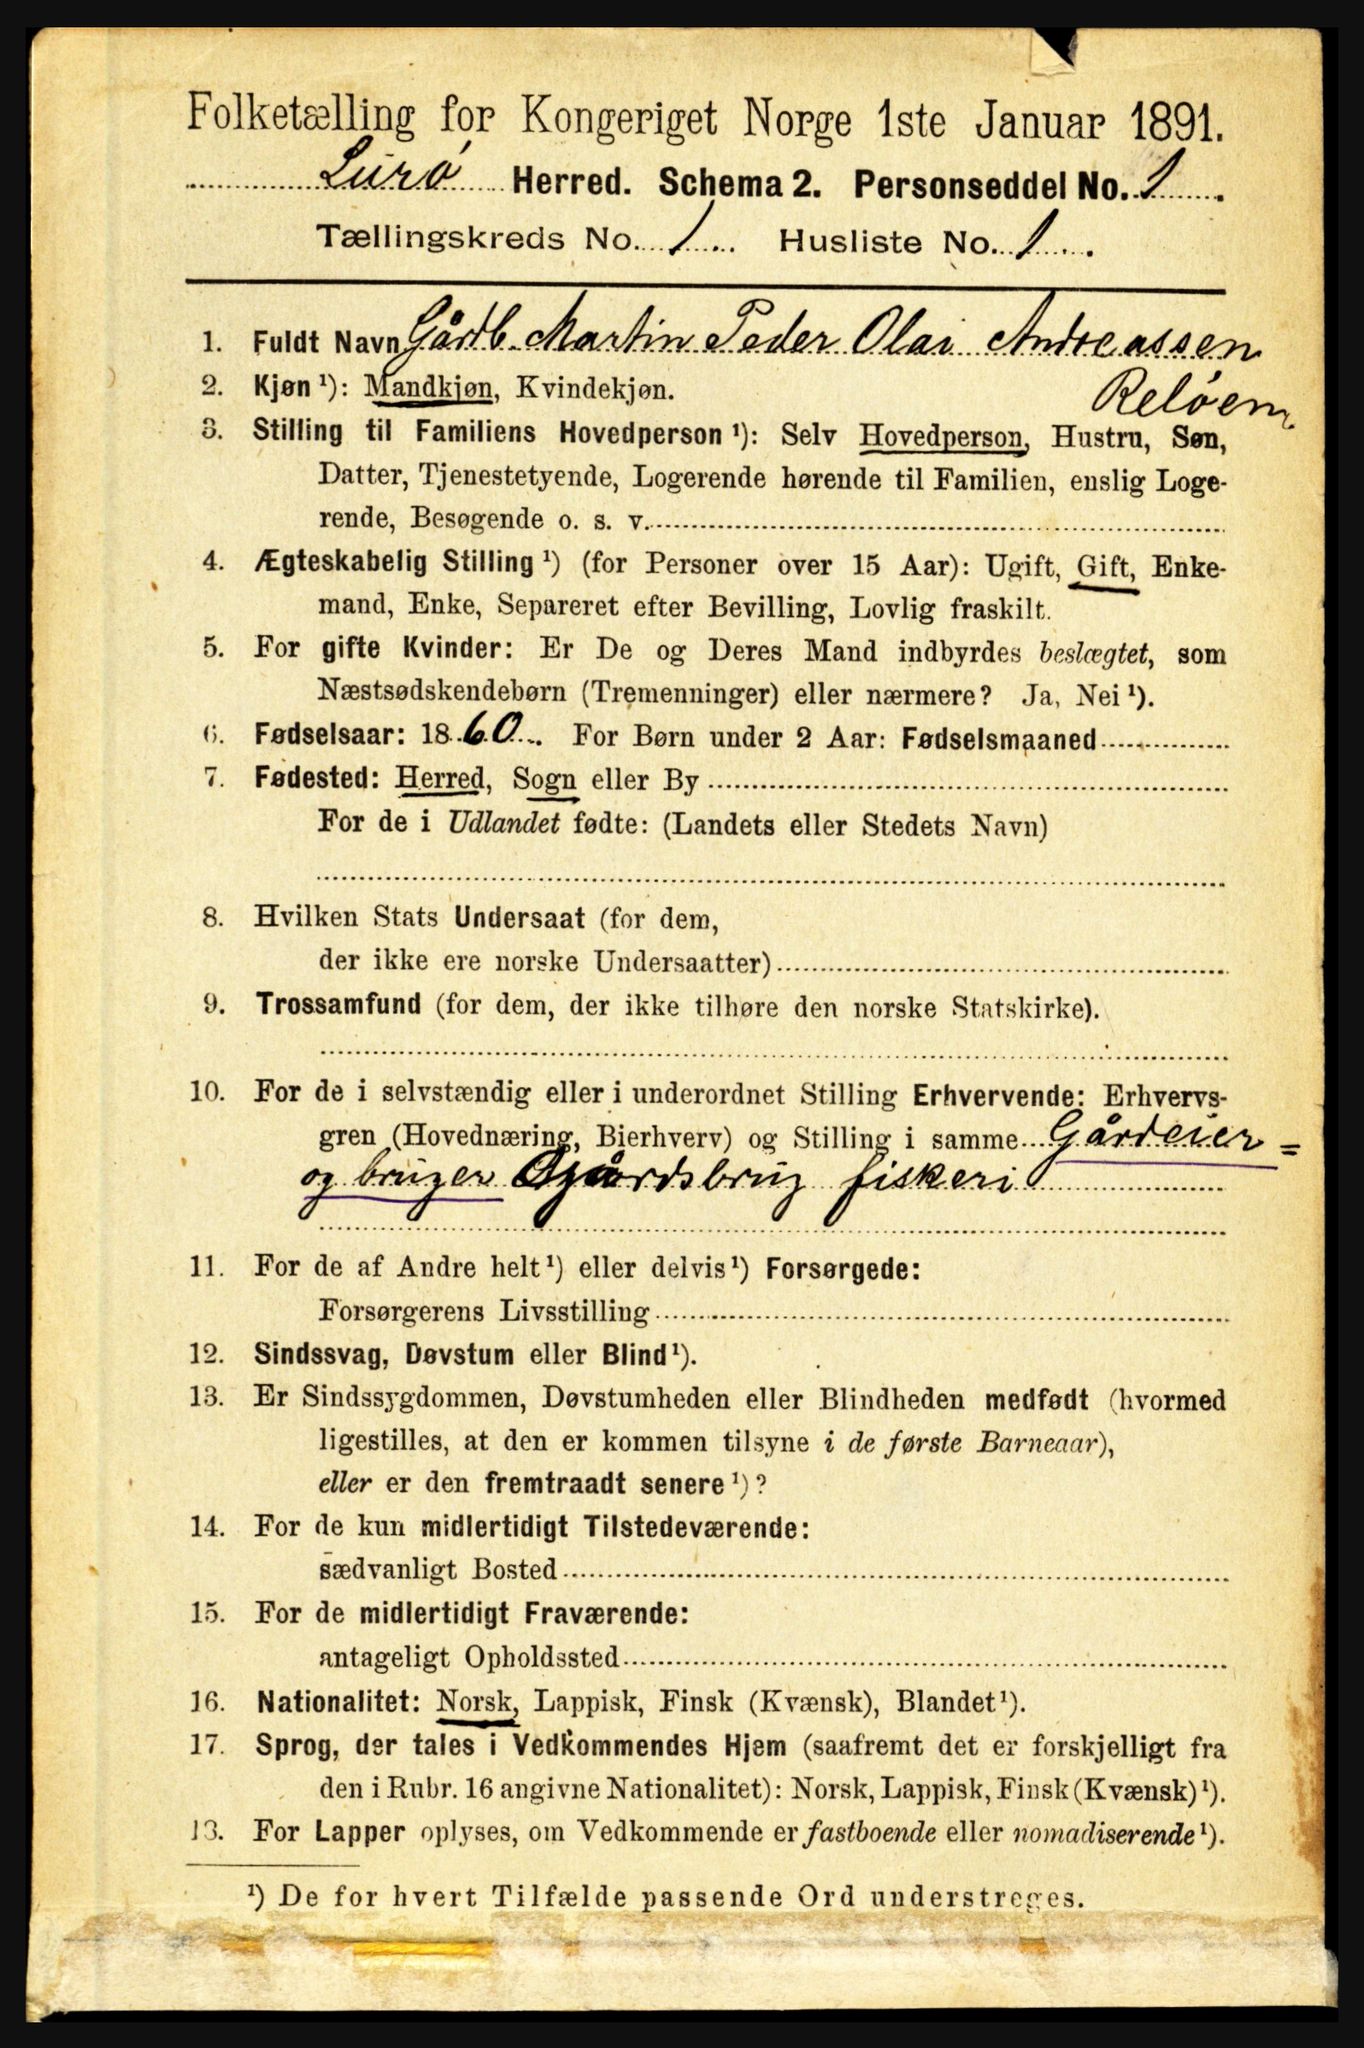 Folketælling for Kongeriget Norge 1ste Januar 1891.
Lurø Herred. Schema 2. Personseddel No. 1.
Tællingskreds No. 1. Husliste No. 1.
1. Fuldt Navn Gårdb. Martin Peder Olai Andreassen
Reløen
2. Kjøn ¹): Mandkjøn, Kvindekjøn.
3. Stilling til Familiens Hovedperson ¹): Selv Hovedperson, Hustru, Søn,
Datter, Tjenestetyende, Logerende hørende til Familien, enslig Loge-
rende, Besøgende o. s. v.
4. Ægteskabelig Stilling ¹) (for Personer over 15 Aar): Ugift, Gift, Enke-
mand, Enke, Separeret efter Bevilling, Lovlig fraskilt.
5. For gifte Kvinder: Er De og Deres Mand indbyrdes beslægtet, som
Næstsødskendebørn (Tremenninger) eller nærmere? Ja, Nei ¹).
6. Fødselsaar: 1860. For Børn under 2 Aar: Fødselsmaaned
7. Fødested: Herred, Sogn eller By
For de i Udlandet fødte: (Landets eller Stedets Navn)
8. Hvilken Stats Undersaat (for dem,
der ikke ere norske Undersaatter)
9. Trossamfund (for dem, der ikke tilhøre den norske Statskirke).
10. For de i selvstændig eller i underordnet Stilling Erhvervende: Erhvervs-
gren (Hovednæring, Bierhverv) og Stilling i samme Gårdeier=
og bruger Gårdsbrug fiskeri
11. For de af Andre helt ¹) eller delvis ¹) Forsørgede:
Forsørgerens Livsstilling
12. Sindssvag, Døvstum eller Blind ¹).
13. Er Sindssygdommen, Døvstumheden eller Blindheden medfødt (hvormed
ligestilles, at den er kommen tilsyne i de første Barneaar),
eller er den fremtraadt senere ¹)?
14. For de kun midlertidigt Tilstedeværende:
sædvanligt Bosted
15. For de midlertidigt Fraværende:
antageligt Opholdssted
16. Nationalitet: Norsk, Lappisk, Finsk (Kvænsk), Blandet ¹).
17. Sprog, der tales i Vedkommendes Hjem (saafremt det er forskjelligt fra
den i Rubr. 16 angivne Nationalitet): Norsk, Lappisk, Finsk (Kvænsk) ¹).
13. For Lapper oplyses, om Vedkommende er fastboende eller nomadiserende ¹).
¹) De for hvert Tilfælde passende Ord understreges.